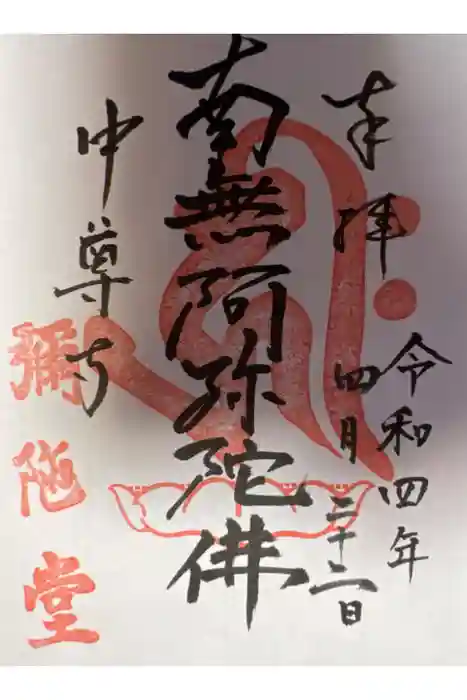 奉拝
令和四年
四月二十二日
南無阿弥陀佛
中尊寺
彌陀堂